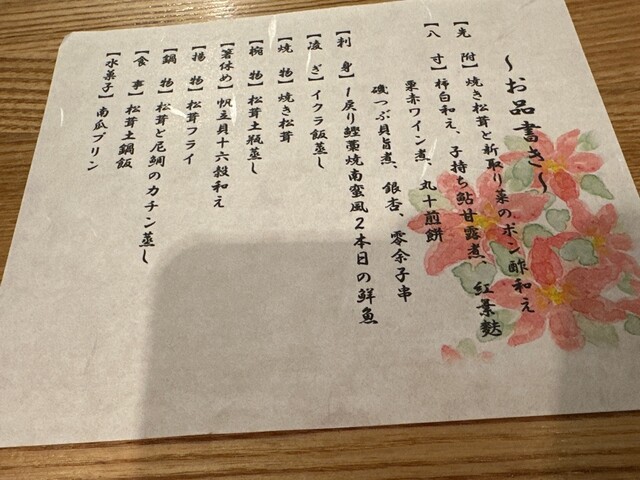 ～お品書き～
【先 附】焼き松茸と新取り菜のポン酢和え
【八 寸】柿白和え、子持ち鮎甘露煮、紅葉麩
栗赤ワイン煮、丸十煎餅
磯つぶ貝旨煮、銀杏、零余子串
【刺 身】1戻り鰹藁焼南蛮風2本日の鮮魚
【凌 ぎ】イクラ飯蒸し
【焼 物】焼き松茸
【椀 物】松茸土瓶蒸し
【箸休め】帆立貝十六穀和え
【揚 物】松茸フライ
【鍋 物】松茸と尼鯛のカチン蒸し
【食 事】松茸土鍋飯
【水菓子】南瓜プリン